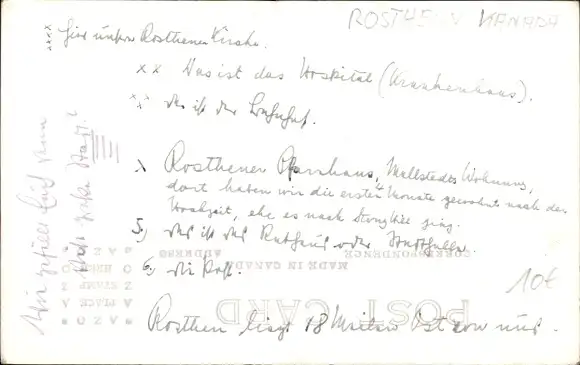 ROSTHERN KANADA
xxxx Hier unsere Rosthener Kirche.
xx Das ist das Hospital (Krankenhaus).
xx das ist der Bahnhof.
Rosthener Pfarrhaus, Wohnung,
dort haben wir die ersten 4 Monate gewohnt nach der
Hochzeit, ehe es nach ging.
5.) das ist das Rathaus oder
6.) die Post.
Rosthern liegt 18 Meilen Ost von uns.
10€
Wie gefällt Euch
Stadt?
CORRESPONDENCE
ADDRESS
MADE IN CANADA
POST CARD
AZO
PLACE
STAMP
HERE
AZO